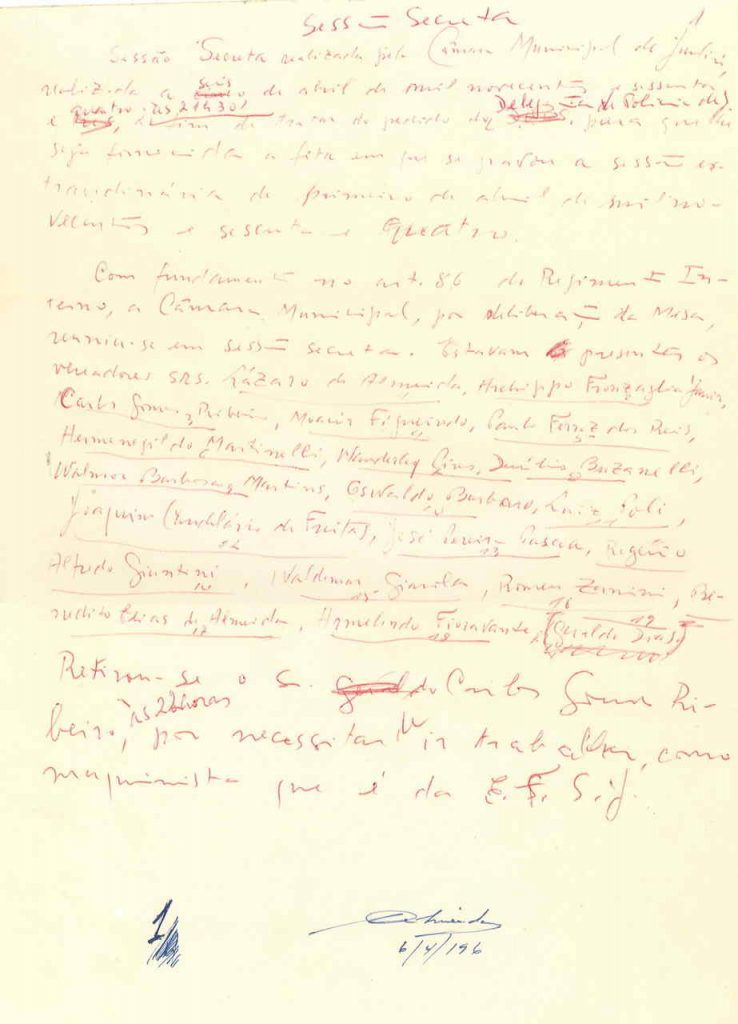 1
Sessão Secreta
Sessão Secreta realizada pela Câmara Municipal de Jundiaí,
realizada a seis de abril de mil novecentos e sessenta
e quatro, às 21h30', a fim de tratar do pedido da Delegacia de Polícia
seja fornecida a fita em que se gravou a sessão ex-
traordinária de primeiro de abril de mil no-
vecentos e sessenta e quatro.
Com fundamento no art. 86 do Regimento In-
terno, a Câmara Municipal, por deliberação da Mesa,
reuniu-se em sessão secreta. Estavam presentes os
vereadores srs. Lázaro de Almeida, Archippo Fronzaglia Junior,
Carlos Gomes Ribeiro, Moacir Figueiredo, Paulo Ferraz dos Reis,
Hermenegildo Martinelli, Wanderley Pires, Duílio Buzanelli,
Walmor Barbosa Martins, Oswaldo Barbaro, Luiz Poli,
Joaquim Candelário de Freitas, José Pereira, Rogério
Alfredo Giuntini, Waldemar Giarola, Romeu Zanini, Be-
nedito Elias de Almeida, Hermelindo Fioravante, (Geraldo Dias)
Retirou-se o sr. Carlos Gomes Ri-
beiro, às 22 horas, por necessitar ir trabalhar, como
maquinista que é da E. F. S. J.
1
Almeida
6/4/196